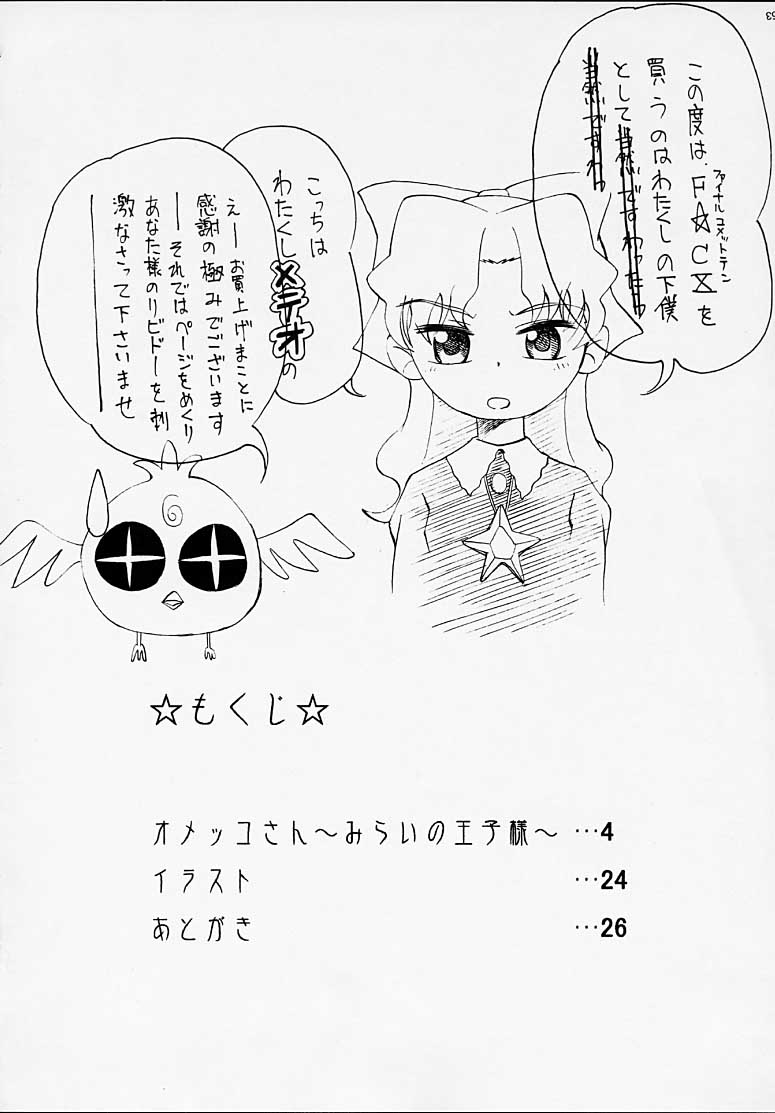 この度は、F☆CXを
ファイナルコメットテン
買うのはわたくしの下僕
として当然ですわったら
当然ですわっ
こっちは
わたくしメテオの
えーお買上げまことに
感謝の極みでございます
――それではページをめくり
あなた様のリビドーを刺
激なさって下さいませ――
☆もくじ☆
オメッコさん～みらいの王子様～ …4
イラスト …24
あとがき …26